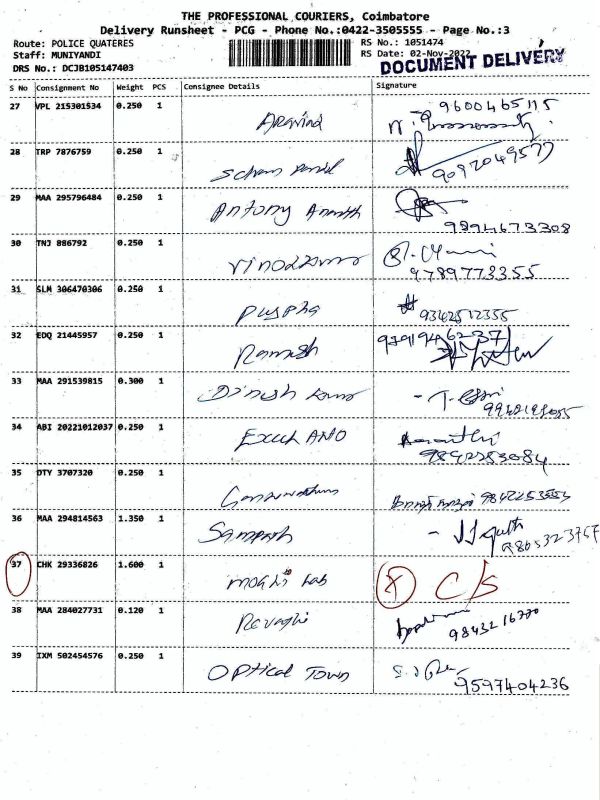 THE PROFESSIONAL COURIERS, Coimbatore
Delivery Runsheet - PCG - Phone No.:0422-3505555 - Page No.:3
Route: POLICE QUATERES
RS No.: 1051474
Staff: MUNIYANDI
RS Date: 02-Nov-2022
DRS No.: DCJB105147403
DOCUMENT DELIVERY
S No Consignment No Weight PCS Consignee Details Signature
27 VPL 215301534 0.250 1 Aravind 9600465115
28 TRP 7876759 0.250 1 9092049577
29 MAA 295796484 0.250 1 Antony 9894673308
30 TNJ 886792 0.250 1 9789773355
31 SLM 306470306 0.250 1 Puspha 9342512355
32 EDQ 21445957 0.250 1 Ramesh
33 MAA 291539815 0.300 1 Dinesh
34 ABI 20221012037 0.250 1 9842253084
35 DTY 3707320 0.250 1
36 MAA 294814563 1.350 1 Sampath
37 CHK 29336826 1.600 1 X C/S
38 MAA 284027731 0.120 1 Revathi
39 IXM 502454576 0.250 1 Optical Town 9597404236